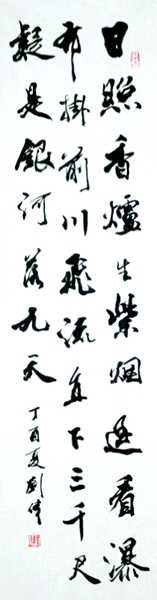 日照香爐生紫烟遥看瀑
布掛前川飛流直下三千尺
疑是銀河落九天
丁酉夏劉